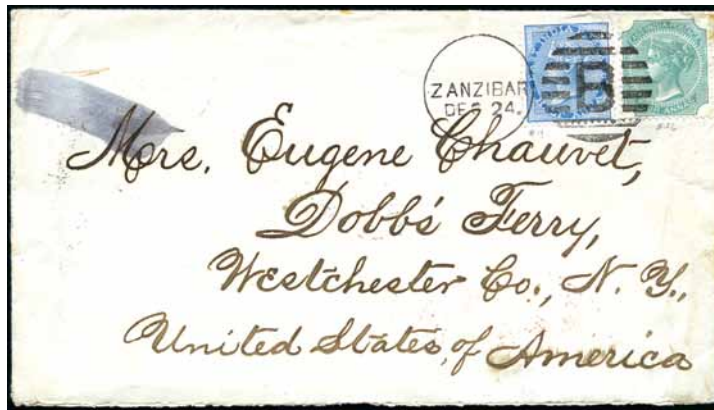 ZANZIBAR
DEC 24.
B
Mrs. Eugene Chauvet,
Dobbs Ferry,
Westchester Co., N. Y.,
United States, of America